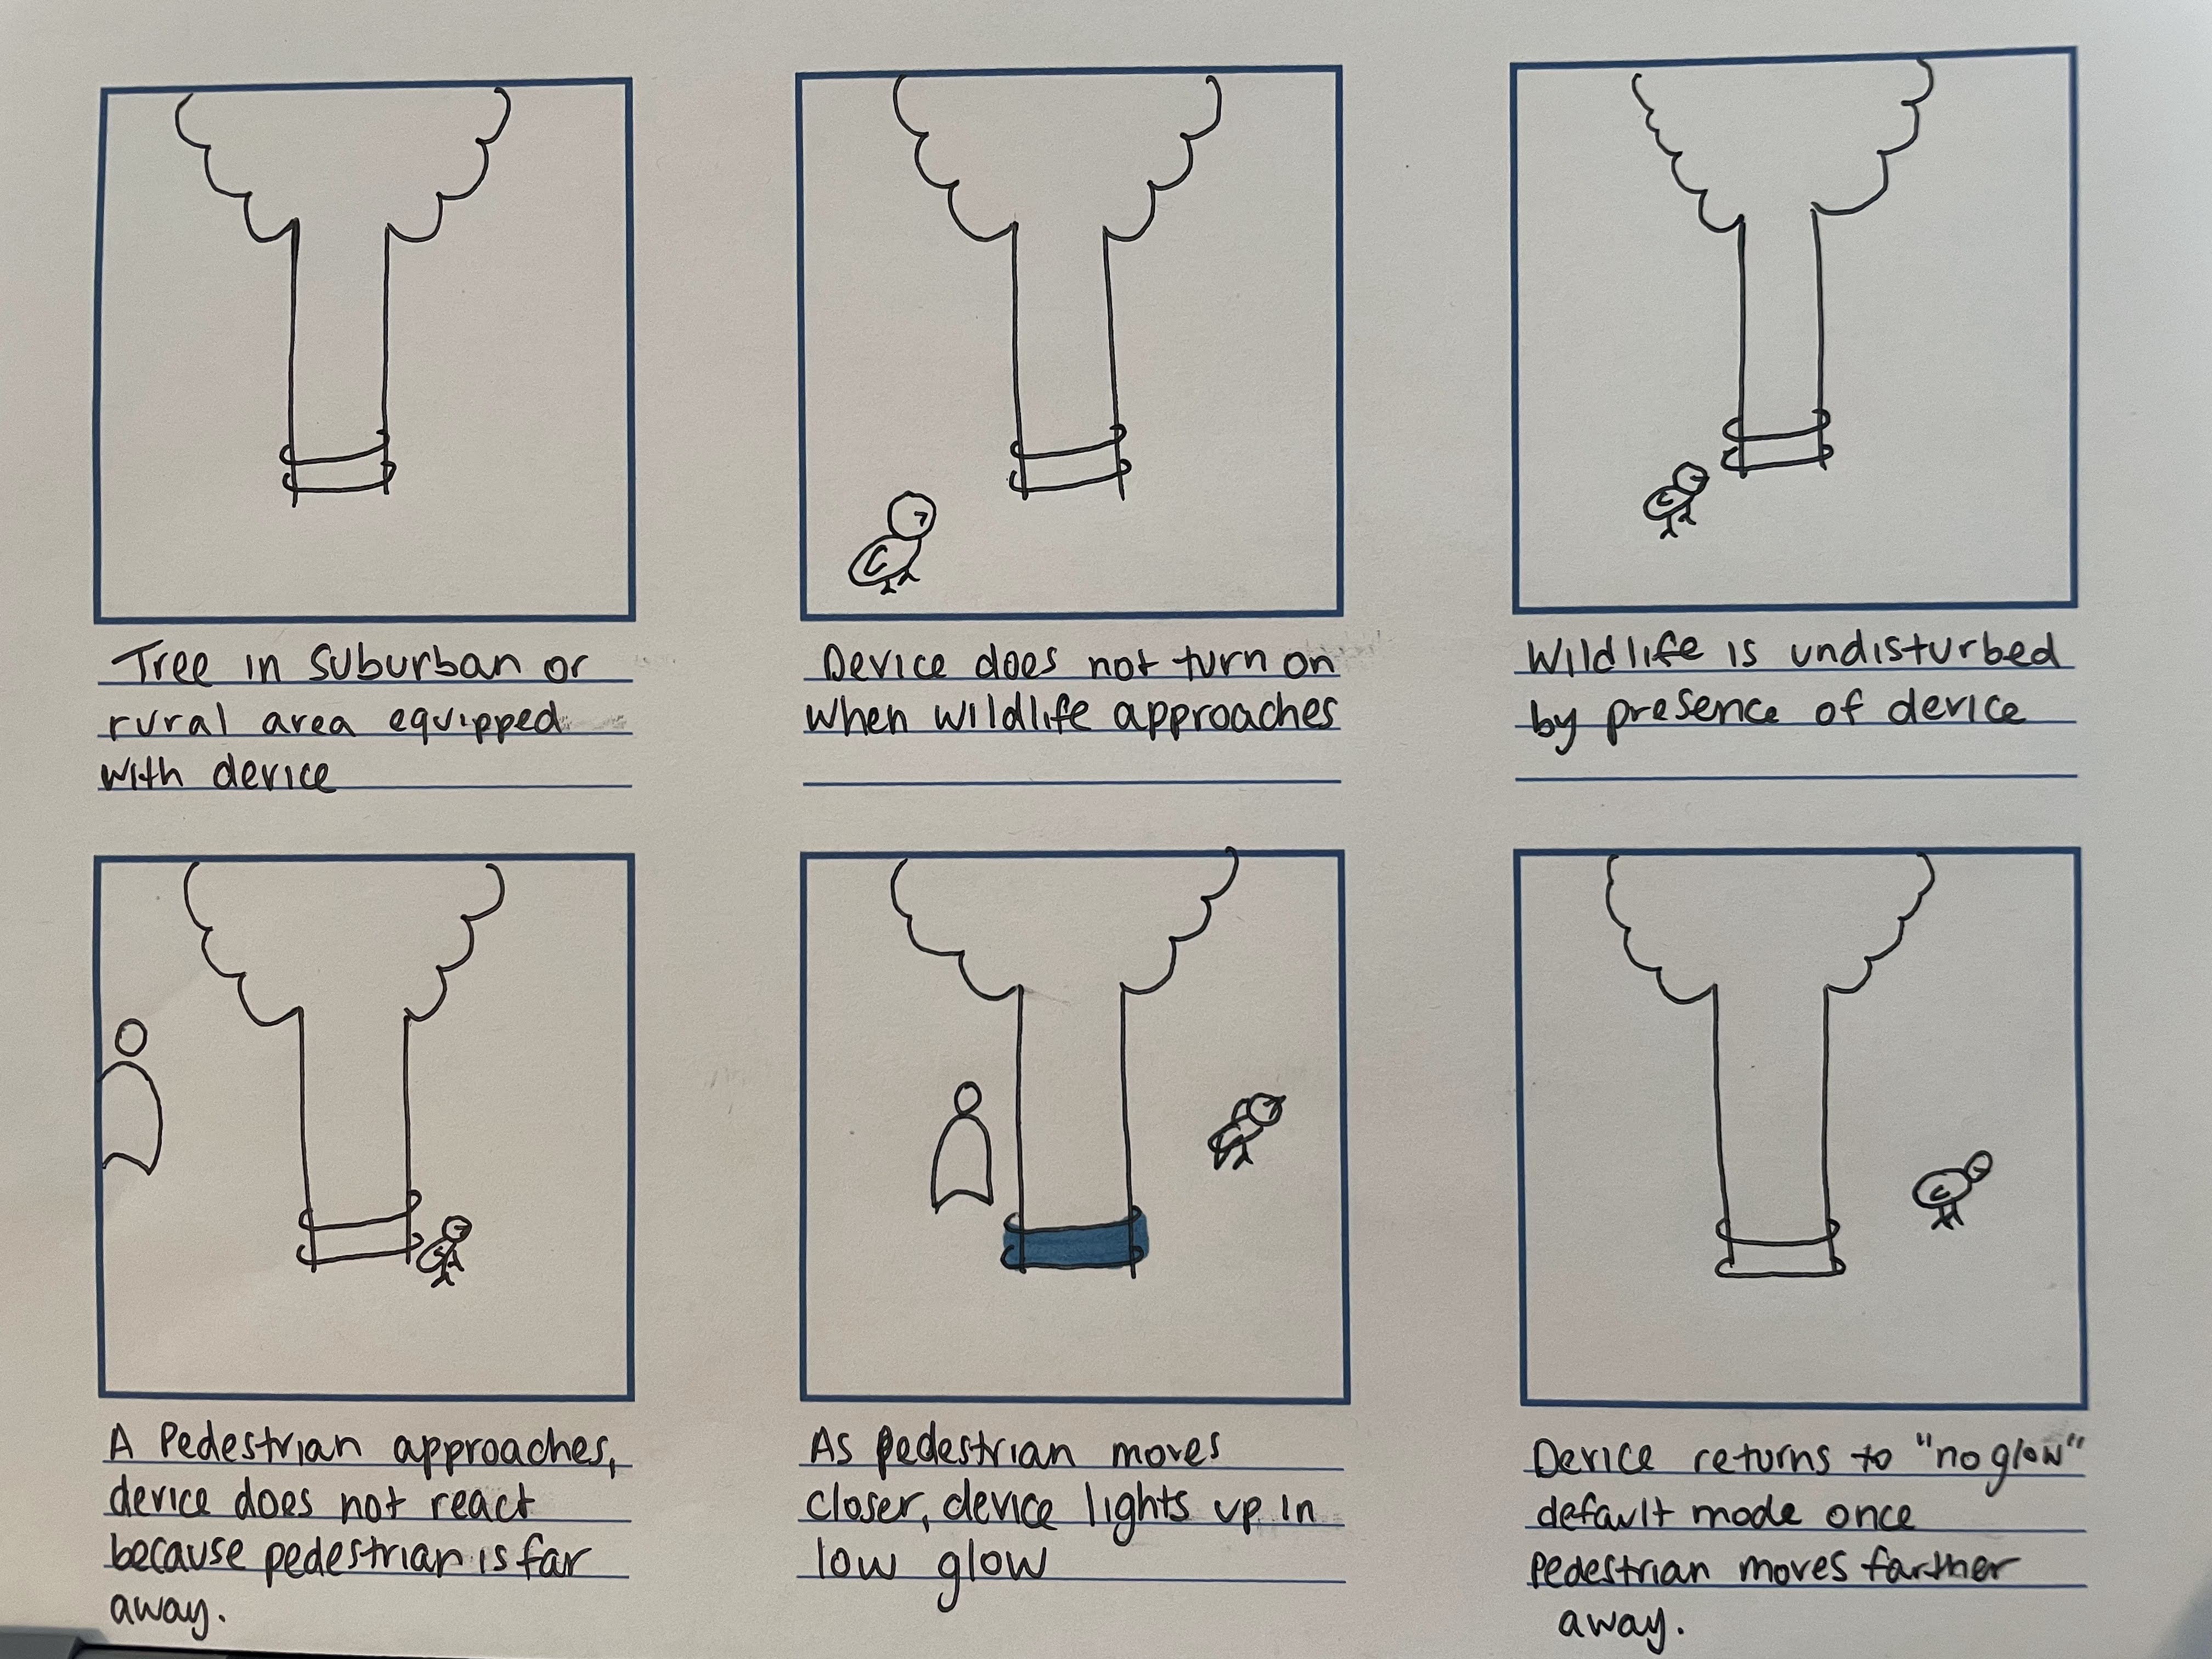 Tree in suburban or
rural area equipped
with device
Device does not turn on
when wildlife approaches
Wildlife is undisturbed
by presence of device
A Pedestrian approaches,
device does not react
because pedestrian is far
away.
As pedestrian moves
closer, device lights up in
low glow
Device returns to "no glow"
default mode once
pedestrian moves farther
away.